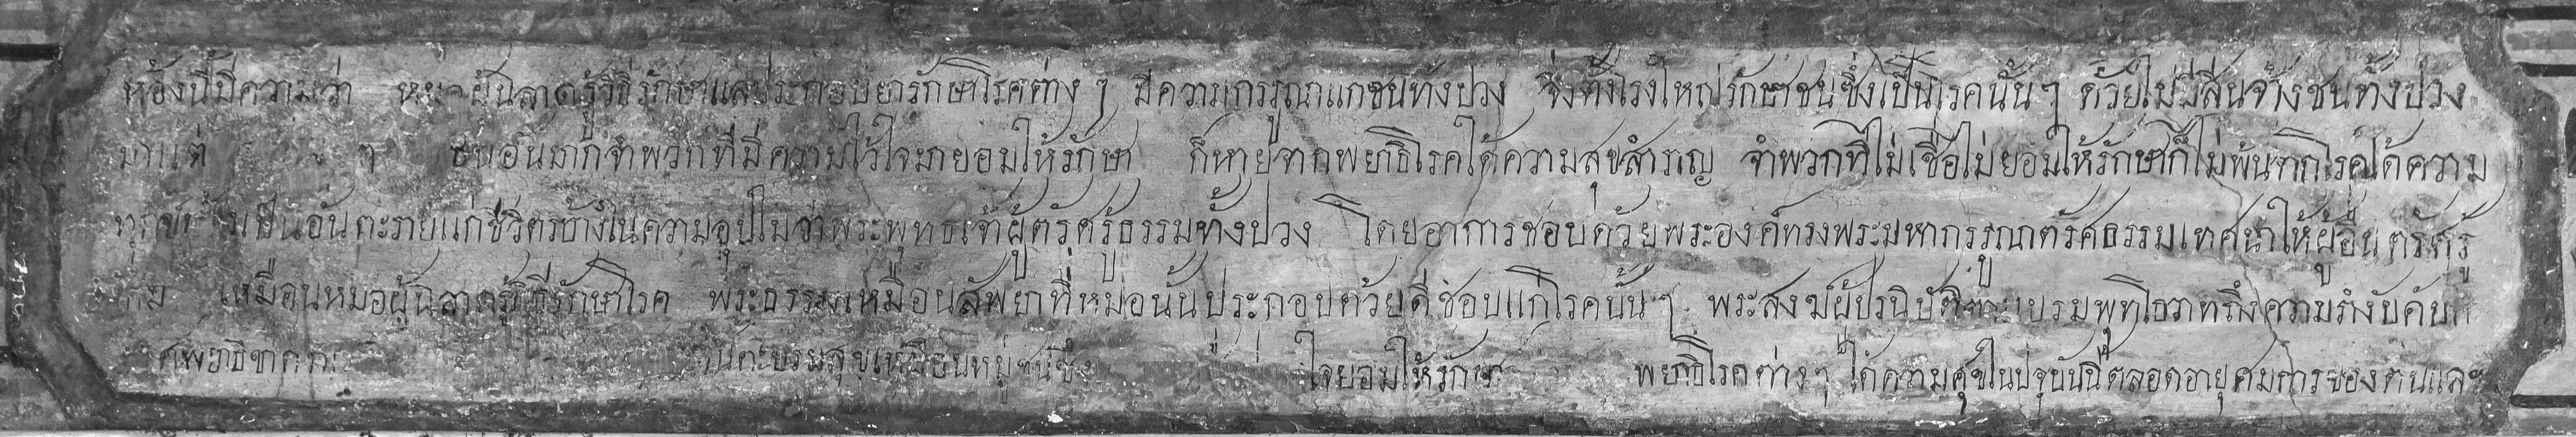 ห้องนี้มีความว่า หมอผู้ฉลาดรู้วิธีรักษาแลประกอบยารักษาโรคต่างๆ มีความกรรุณาแก่ชนทังปวง จึ่งตั้งโรงใหญ่รักษาชนซึ่งเป็นโรคนั้นๆ ด้วยไม่มีสินจ้าง ชนทั้งปวง
มาแต่ ๆ ชนอันมากจำพวกที่มีความไว้ใจมายอมให้รักษา ก็หายจากพยาธิโรคได้ความสุขสำราญ จำพวกที่ไม่เชื่อไม่ยอมให้รักษาก็ไม่พ้นจากโรคได้ความ
เป็นอันตะรายแก่ชีวิตรบ้าง ในความอุปไมว่าพระพุทธเจ้าผู้ตรัศรู้ธรรมทั้งปวง โดยอาการชอบด้วยพระองค์ทรงพระมหากรรุณาตรัศธรรมเทศนาให้ผู้อื่นตรัศรู้
เหมือนหมอผู้ฉลาดรู้วิธีรักษาโรค พระธรรมเหมือนสัพยาที่หมอนั้นประกอบด้วยดีชอบแก่โรคนั้นๆ พระสงฆ์ผู้ปรนิบัติตามบรมพุทโธวาทถึงความรำงับดับ
บรมสุขเหมือนหมู่ชนซึ่ง ใจยอมให้รักษา พยาธิโรคต่างๆ ได้ความศุขในปจุบันนี้ตลอดอายุศมการของตนแล